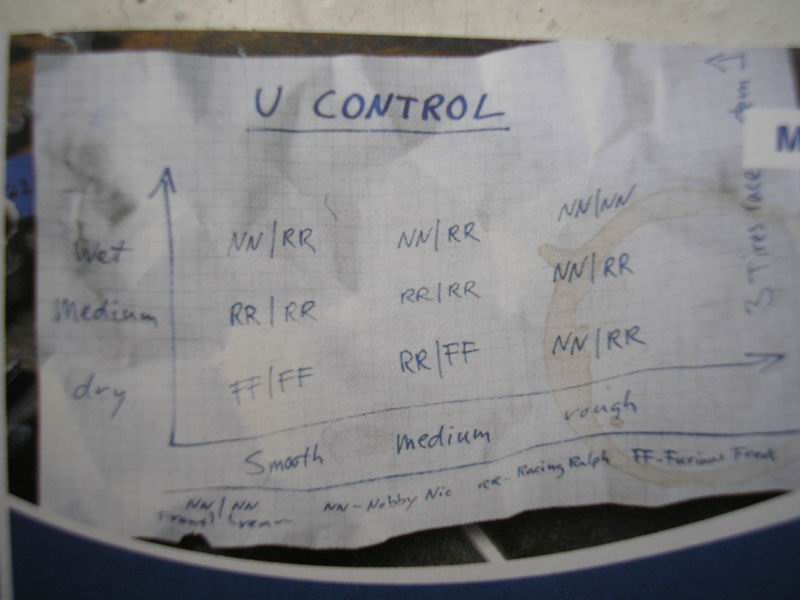 U CONTROL
Wet NN/RR NN/RR NN/NN
Medium RR/RR RR/RR NN/RR
dry FF/FF RR/FF NN/RR
Smooth medium rough
NN/NN
Front/rear
NN-Nobby Nic RR-Racing Ralph FF-Furious Fred
3 Tires race
M